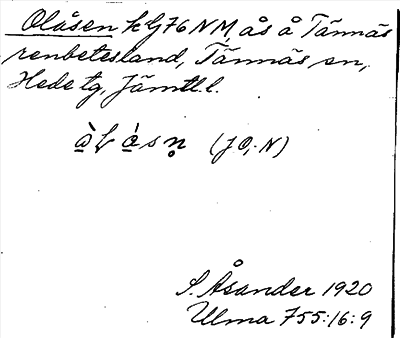 Olåsen k G76 NM, ås å Tännäs
renbetesland, Tännäs sn,
Hede tg, Jämtl. l.
(J O,-N)
S. Åsander 1920
Ulma 755:16:9